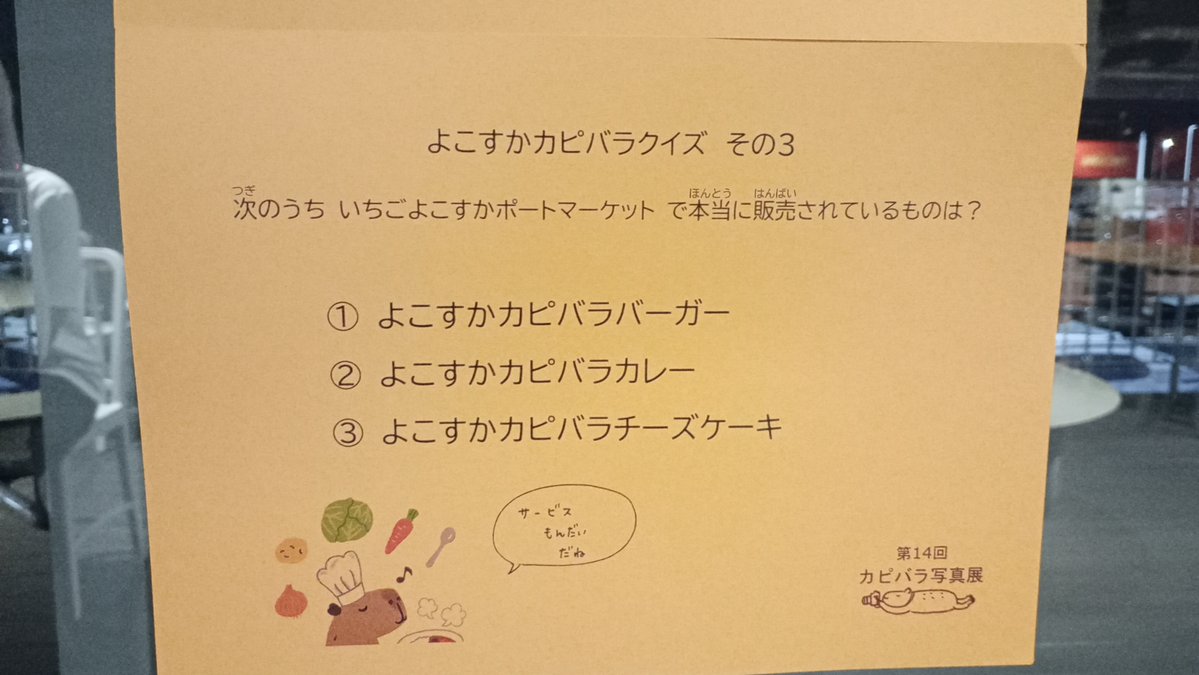 よこすかカピバラクイズ その3
次のうち いちごよこすかポートマーケット で本当に販売されているものは？
つぎ
ほんとう
はんばい
① よこすかカピバラバーガー
② よこすかカピバラカレー
③ よこすかカピバラチーズケーキ
サービス
もんだい
だね
第14回
カピバラ写真展